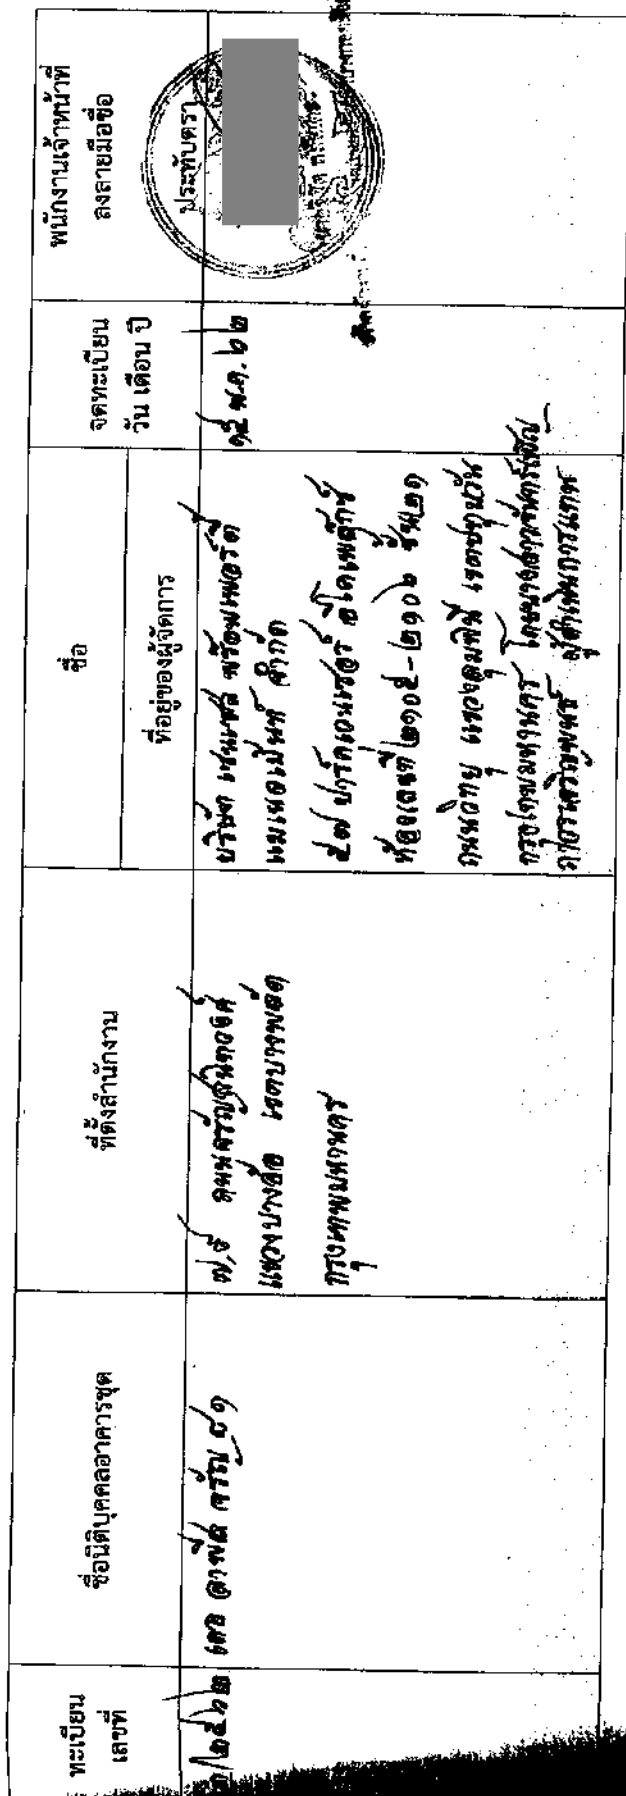 ทะเบียน
เลขที่
ชื่อนิติบุคคลอาคารชุด
ที่ตั้งสำนักงาน
ชื่อ
ที่อยู่ของผู้จัดการ
จดทะเบียน
วัน เดือน ปี
พนักงานเจ้าหน้าที่
ลงลายมือชื่อ
ประทับตรา
/๒๕๖๒
เดอ ลาพีส จรัญ ๘๑
ถนนจรัญสนิทวงศ์
แขวงบางอ้อ เขตบางพลัด
กรุงเทพมหานคร
บริษัท เซนเซส พร็อพเพอร์ตี้
แมเนจเม้นท์ จำกัด
๕๗ ปาร์คเวนเชอร์ อีโคเพล็กซ์
ห้องเลขที่ ๒๑๐๕-๒๑๐๖ ชั้น ๒๑
ถนนวิทยุ แขวงลุมพินี เขตปทุมวัน
กรุงเทพมหานคร โดยนางสาว
ผู้ดำเนินการแทน
๑๕ พ.ค. ๖๒